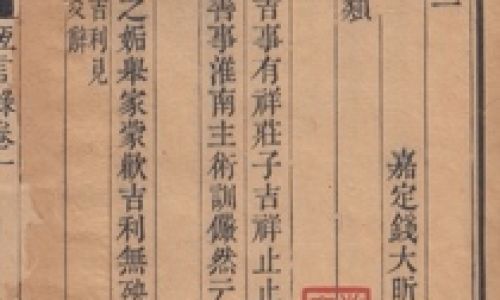 一
嘉定錢大昕
類
吉事有祥莊子吉祥止止
善事淮南主術訓儼然元
之妬舉家蒙歡吉利無殃
吉利見
爻辭
恆言錄卷一